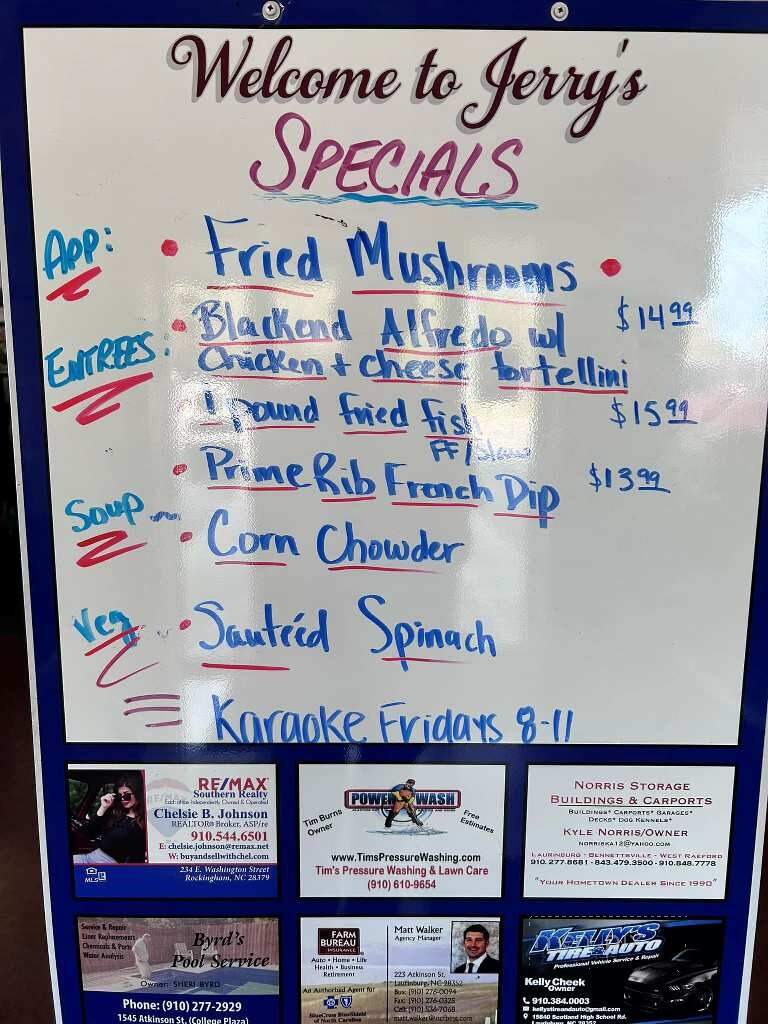 Welcome to Jerry's
SPECIALS
App:
• Fried Mushrooms •
ENTREES:
• Blackend Alfredo w/ $14 99
chicken + cheese tortellini
• 1 pound fried fish $15 99
FF/slaw
• Prime Rib French Dip $13 99
Soup
• Corn Chowder
Veg
• Sauteéd Spinach
Karaoke Fridays 8-11
RE/MAX
Southern Realty
Each office Independently Owned & Operated
Chelsie B. Johnson
REALTOR® Broker, ASP/re
910.544.6501
E: chelsie.johnson@remax.net
W: buyandsellwithchel.com
MLS
234 E. Washington Street
Rockingham, NC 28379
POWER WASH
Tim Burns
Owner
Free
Estimates
www.TimsPressureWashing.com
Tim's Pressure Washing & Lawn Care
(910) 610-9654
NORRIS STORAGE
BUILDINGS & CARPORTS
BUILDINGS* CARPORTS* GARAGES*
DECKS* DOG KENNELS*
KYLE NORRIS/OWNER
NORRISKA12@YAHOO.COM
LAURINBURG - BENNETTSVILLE - WEST RAEFORD
910.277.8681 - 843.479.3500 - 910.848.7778
"YOUR HOMETOWN DEALER SINCE 1990"
Service & Repair
Liner Replacements
Chemicals & Parts
Water Analysis
Byrd's
Pool Service
Owner: SHERI BYRD
Phone: (910) 277-2929
1545 Atkinson St. (College Plaza)
FARM
BUREAU
INSURANCE
Auto • Home • Life
Health • Business
Retirement
An Authorized Agent for
BlueCross BlueShield
of North Carolina
Matt Walker
Agency Manager
223 Atkinson St.
Laurinburg, NC 28352
Bus: (910) 276-0094
Fax: (910) 276-0325
Cell: (910) 536-7068
matt.walker@ncfbins.com
KELLY'S
TIRE & AUTO
Professional Vehicle Service & Repair
Kelly Cheek
Owner
910.384.0003
kellystireandauto@gmail.com
15840 Scotland High School Rd.